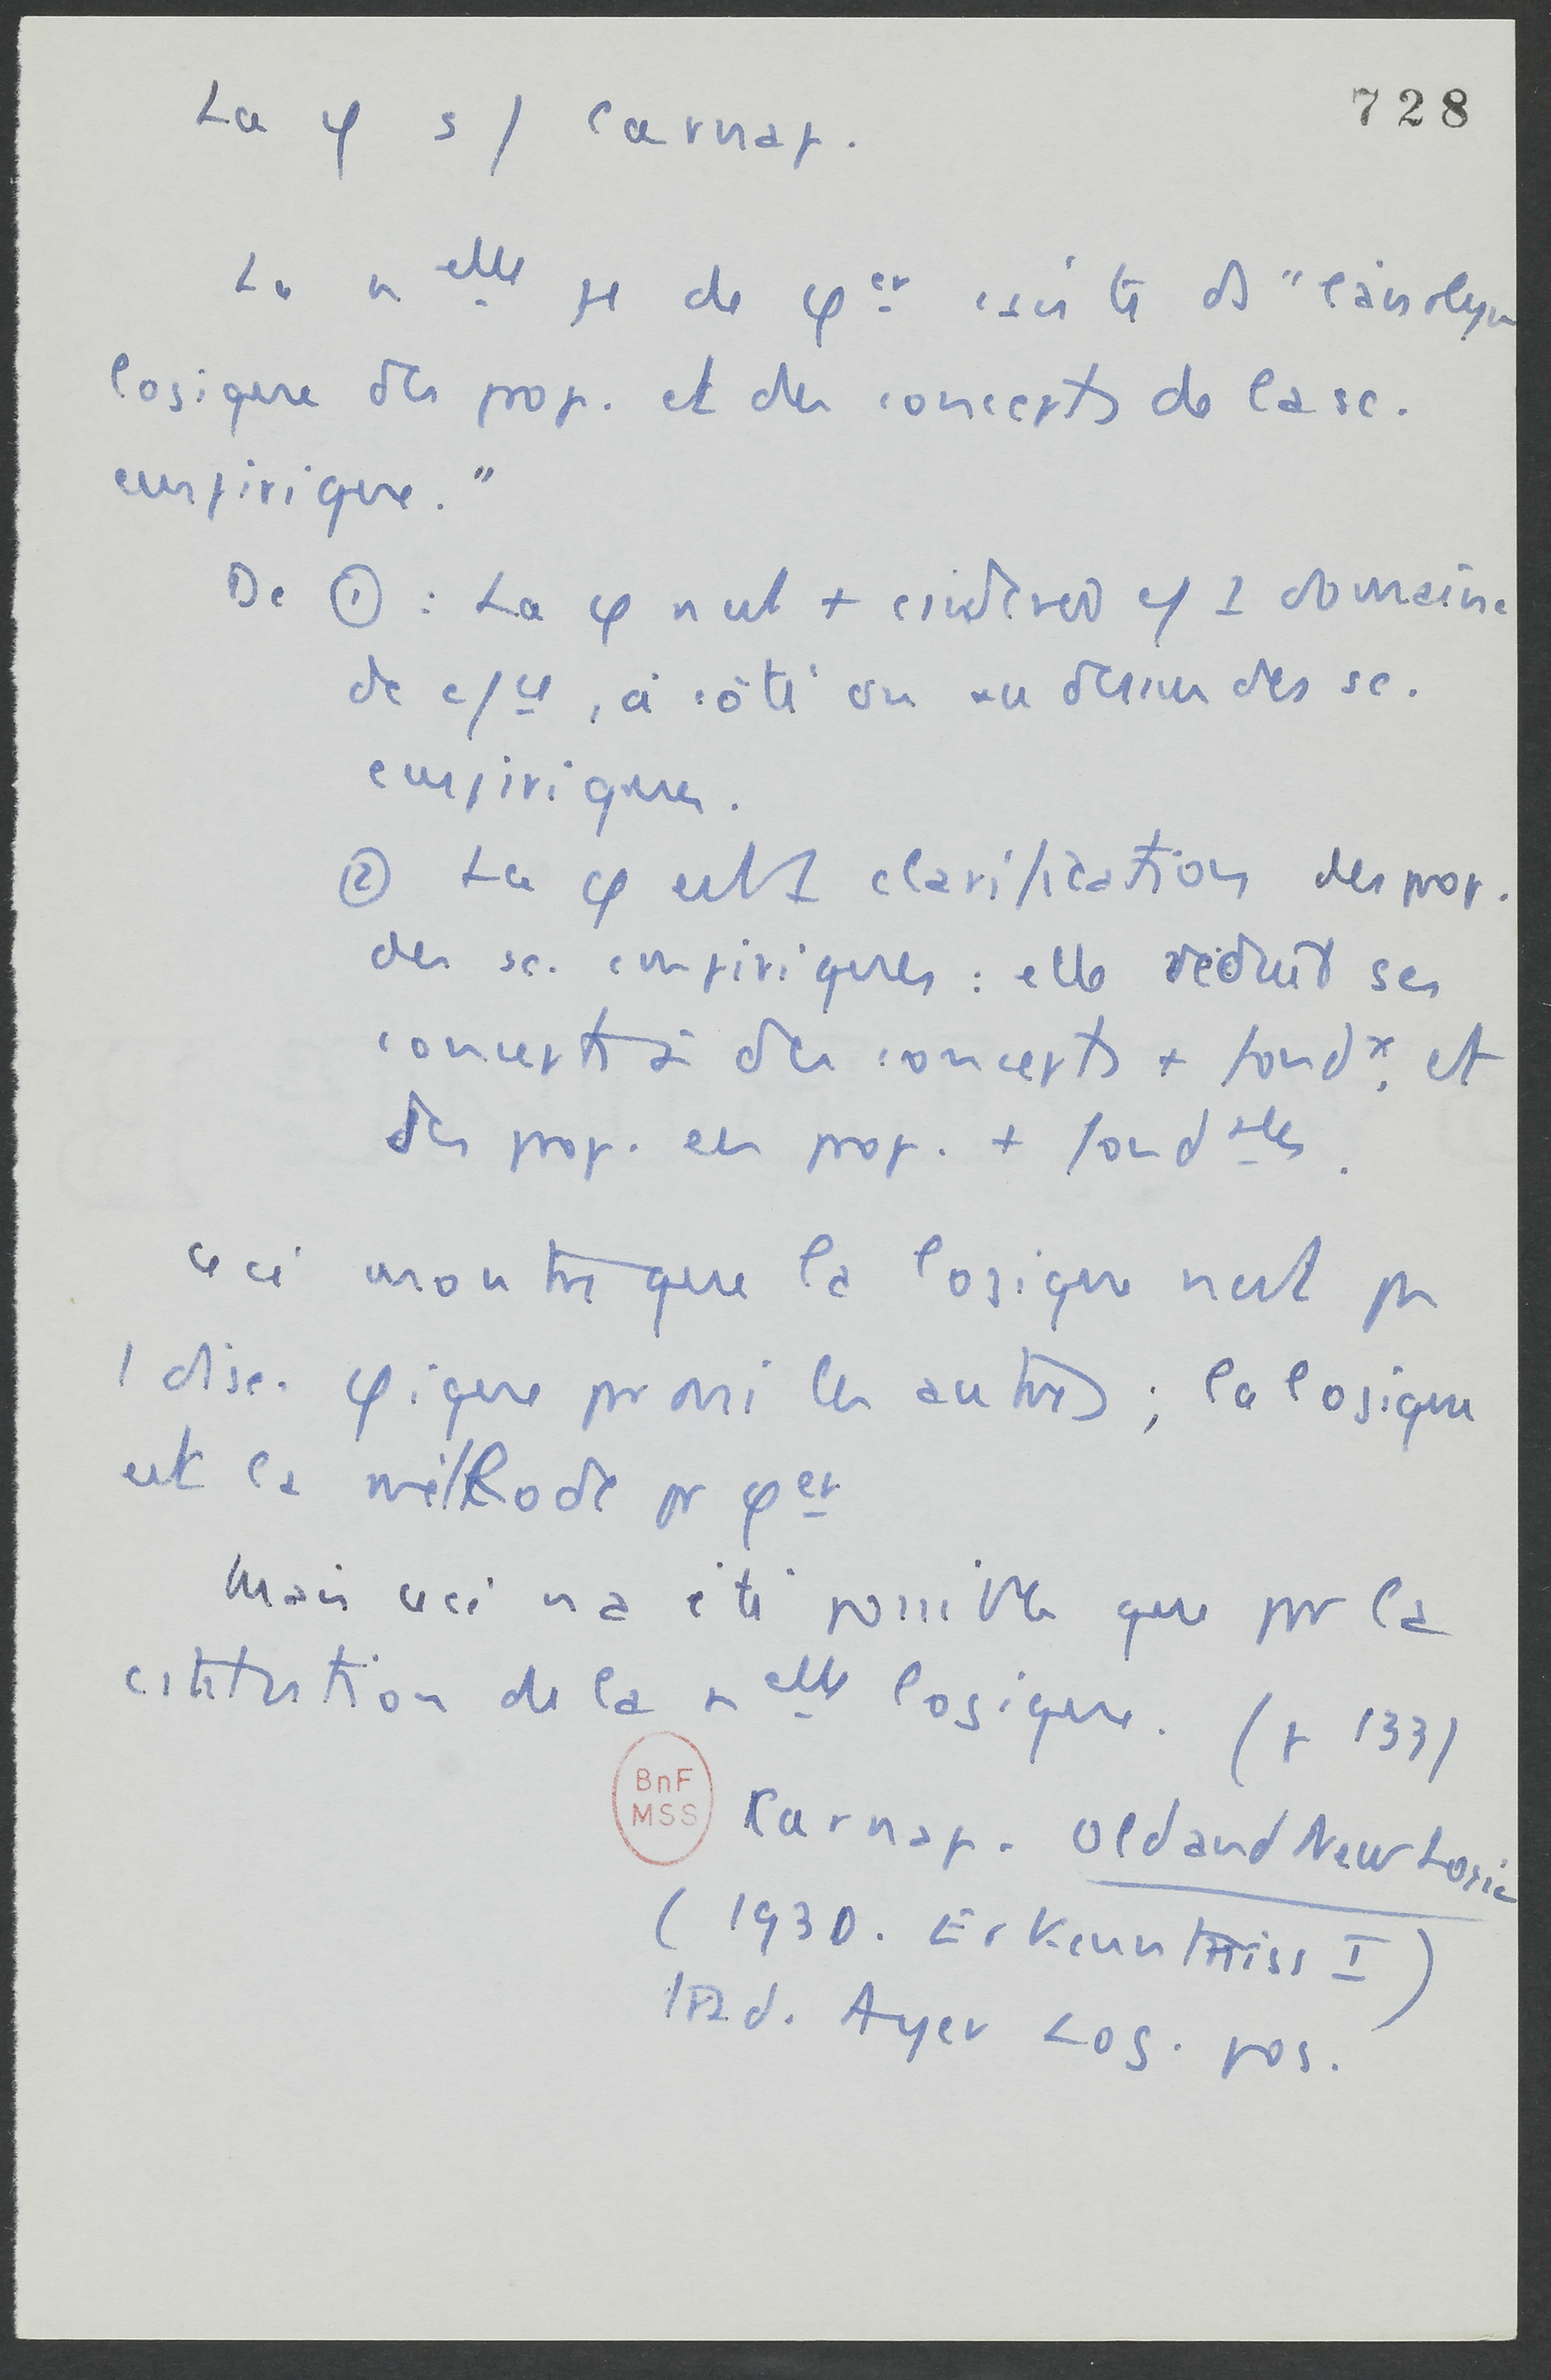 728
La φ s/ Carnap.
La nelle fe de φer csiste ds "l'analyse
logique des prop. et des concepts de la sc.
empirique."
Dc ① : La φ n'est + csidérée c/ 1 domaine
de c/ce, à côté ou au dessus des sc.
empiriques.
② La φ est 1 clarification des prop.
des sc. empiriques : elle réduit ses
concepts à des concepts + fondx. et
des prop. en prop. + fondales.
Ceci montre que la logique n'est pas
1 disc. φique parmi les autres ; la logique
est la méthode pr φer
Mais ceci n'a été possible que par la
cstitution de la nelle logique. (p 133)
BnF
MSS
Carnap. Old and New Logic
(1930. Erkenntniss I)
trad. Ayer Log. pos.